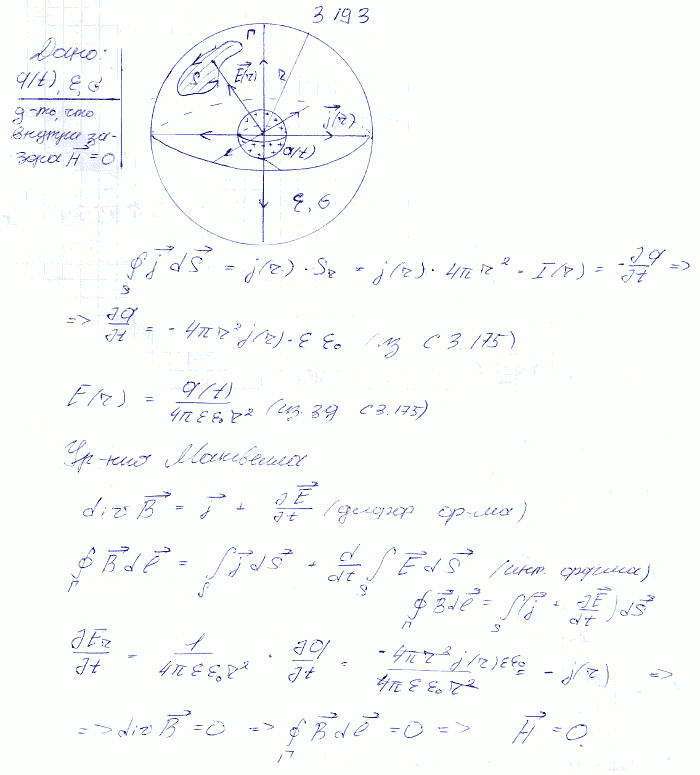 3.193
Дано:
q(t), ε, σ
д-ть, что
внутри за-
зора H⃗ = 0
Γ
S
E⃗(r)
r
j⃗(r)
q(t)
ε, σ
∮_S j⃗ dS⃗ = j(r) · S_r = j(r) · 4πr² = I(r) = -∂q/∂t =>
=> ∂q/∂t = - 4πr² j(r) · ε ε₀ (из С 3.175)
E(r) = q(t)/4πεε₀r² (из зд С3.175)
Ур-ния Максвелла
div B⃗ = j⃗ + ∂E⃗/∂t (дифор ф-ма)
∮_Γ B⃗ dl⃗ = ∫_S j⃗ dS⃗ + d/dt ∫_S E⃗ dS⃗ (инт. форма)
∮_Γ B⃗dl⃗ = ∫_S (j⃗ + ∂E⃗/dt) dS⃗
∂E_r/∂t = 1/4πεε₀r² · ∂q/∂t = -4πr² j(r)εε₀/4πεε₀r² = - j(r) =>
=> div B⃗ = 0 => ∮_Γ B⃗ dl⃗ = 0 => H⃗ = 0.